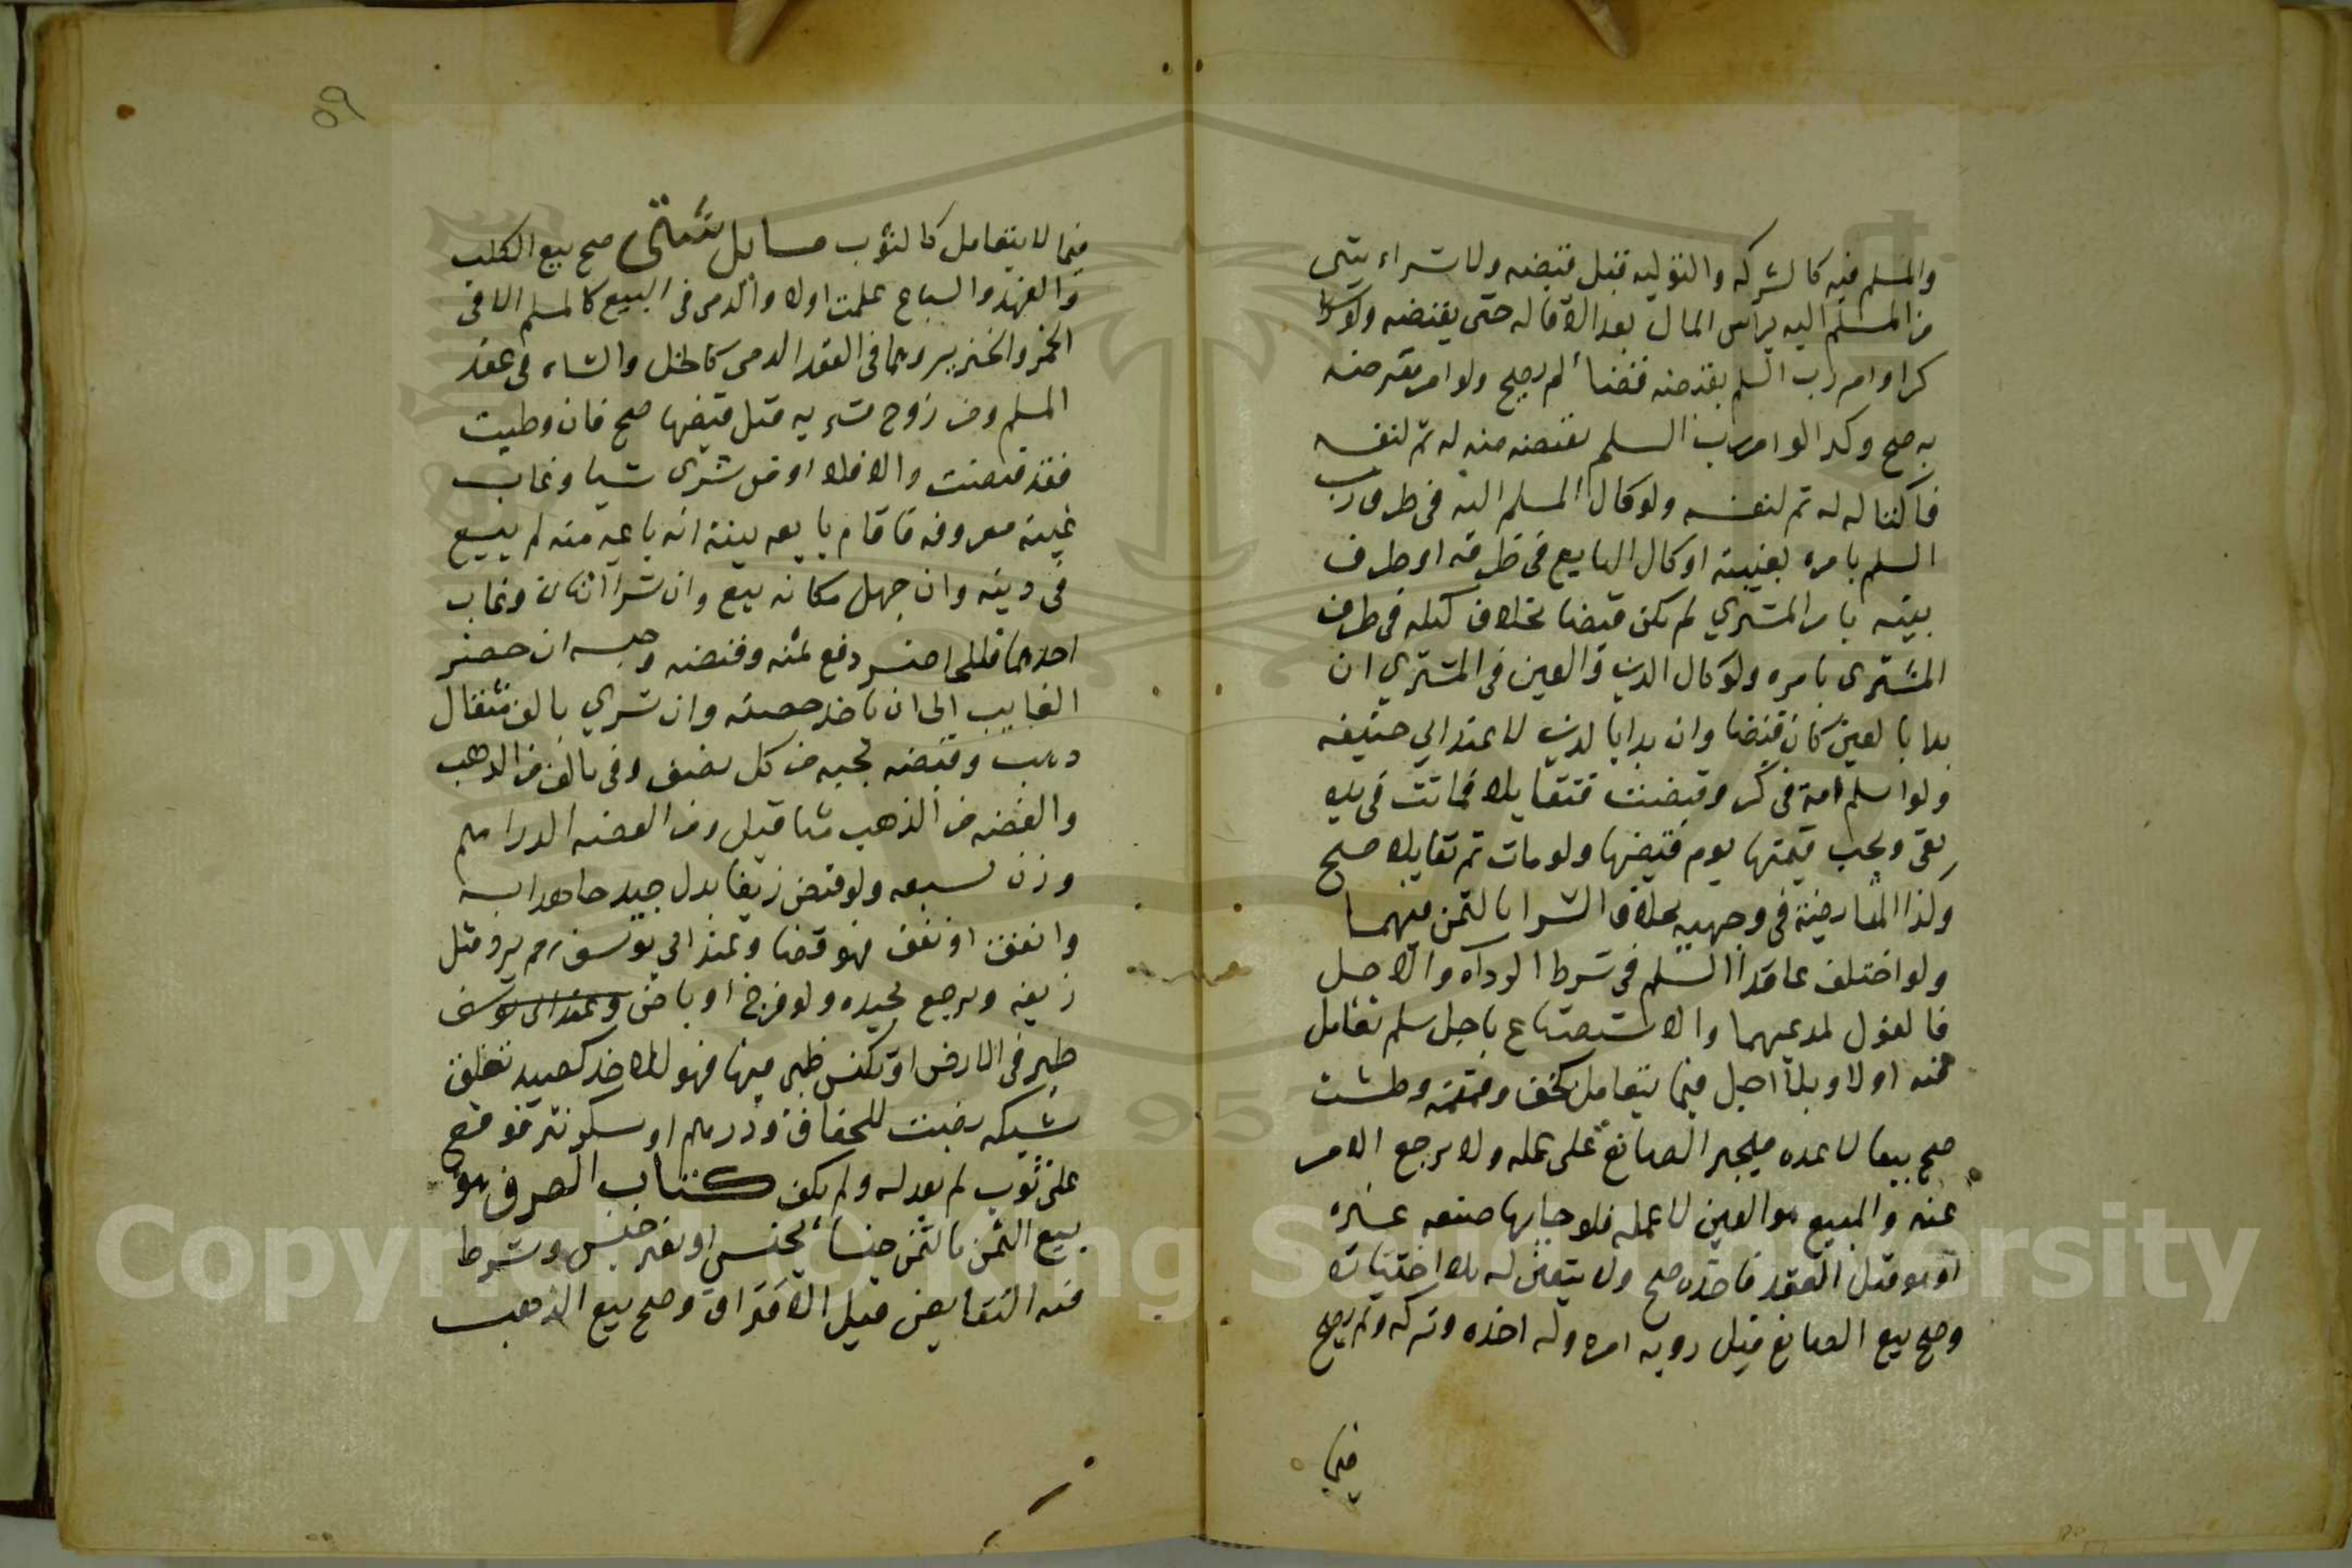 والمسلم فيه كالشركه والتوليه قبل قبضه ولا شراء شي
من المسلم اليه براس المال بعد الاقاله حتى يقبضه ولو شرا
كرا وامر رب السلم بقبضه قضاء لم يصح ولو امر مقرضه
به صح وكدا لو امر رب السلم بقبضه منه له ثم لنفسه
فاكتاله له ثم لنفسه ولو كال المسلم اليه في ظرف رب
السلم بامره بغيبته او كال البايع في ظرفه او ظرف
بيته بامر المشتري لم يكن قبضا بخلاف كيله في ظرف
المشترى بامره ولو كال الدين والعين في المشتري ان
بدا بالعين كان قبضا وان بدا بالدين لا عند ابي حنيفه
ولو اسلم امة في كر وقبضت فتقايلا فماتت في يده
بقى ويجب قيمتها يوم قبضها ولو ماتت ثم تقايلا صح
وكذا المقايضة في وجهيه بخلاف الشرا بالثمن فيهما
ولو اختلف عاقدا السلم في شرط الرداه والاجل
فالقول لمدعيهما والاستصناع باجل سلم تعامل
فيه اولا وبلا اجل فيما يتعامل كخف وقمقمه وطشت
صح بيعا لا عده فيجبر الصانع على عمله ولا يرجع الامر
عنه والمبيع هو العين لا عمله فلو جا بها صنعه غيره
او هو قبل العقد فاخذه صح ولا يتعين له بلا اختياره
وصح بيع الصانع قبل رويه امره وله اخذه وتركه ولم يصح
فيما
٥٩
فيما لا يتعامل كالثوب مسايل شتى صح بيع الكلب
والفهد والسباع علمت اولا والدمى في البيع كالمسلم الا في
الخمر والخنزير وهما في العقد الدمى كالخل والشاه في عقد
المسلم ومن زوج مشريه قبل قبضها صح فان وطيت
فقد قبضت والا فلا او من شرى شيا وغاب
غيبه معروفه فاقام بايعه بينة انه باعه منه لم يبيع
في دينه وان جهل مكانه بيع وان شرا اثنان وغاب
احدهما فللحاضر دفع ثمنه وقبضه وحبسه ان حضر
الغايب الى ان ياخذ حصته وان شري بالف مثقال
دهب وفضه تجب من كل نصف وفي بالف من الدهب
والفضه من الذهب مثاقيل ومن الفضه الدراهم
وزن سبعه ولو قبض زيفا بدل جيد جاهلا به
وانفق او نفق فهو قضا وعند ابي يوسف رحم يرد مثل
زيفه ويرجع بجيده ولو فرخ او باض وعند ابى يوسف
طير في الارض او تكنس ظبى فيها فهو للاخذ كصيد تعلق
شبكه نصبت للجفاف ودرهم او سكر نثر فوقع
على ثوب لم يعد له ولم يكف كتاب الصرف هو
بيع الثمن بالثمن جنسا بجنس او بغير جنس وشرط
فيه التقابض قبل الافتراق وصح بيع الذهب
Copyright © King Saud University
1957